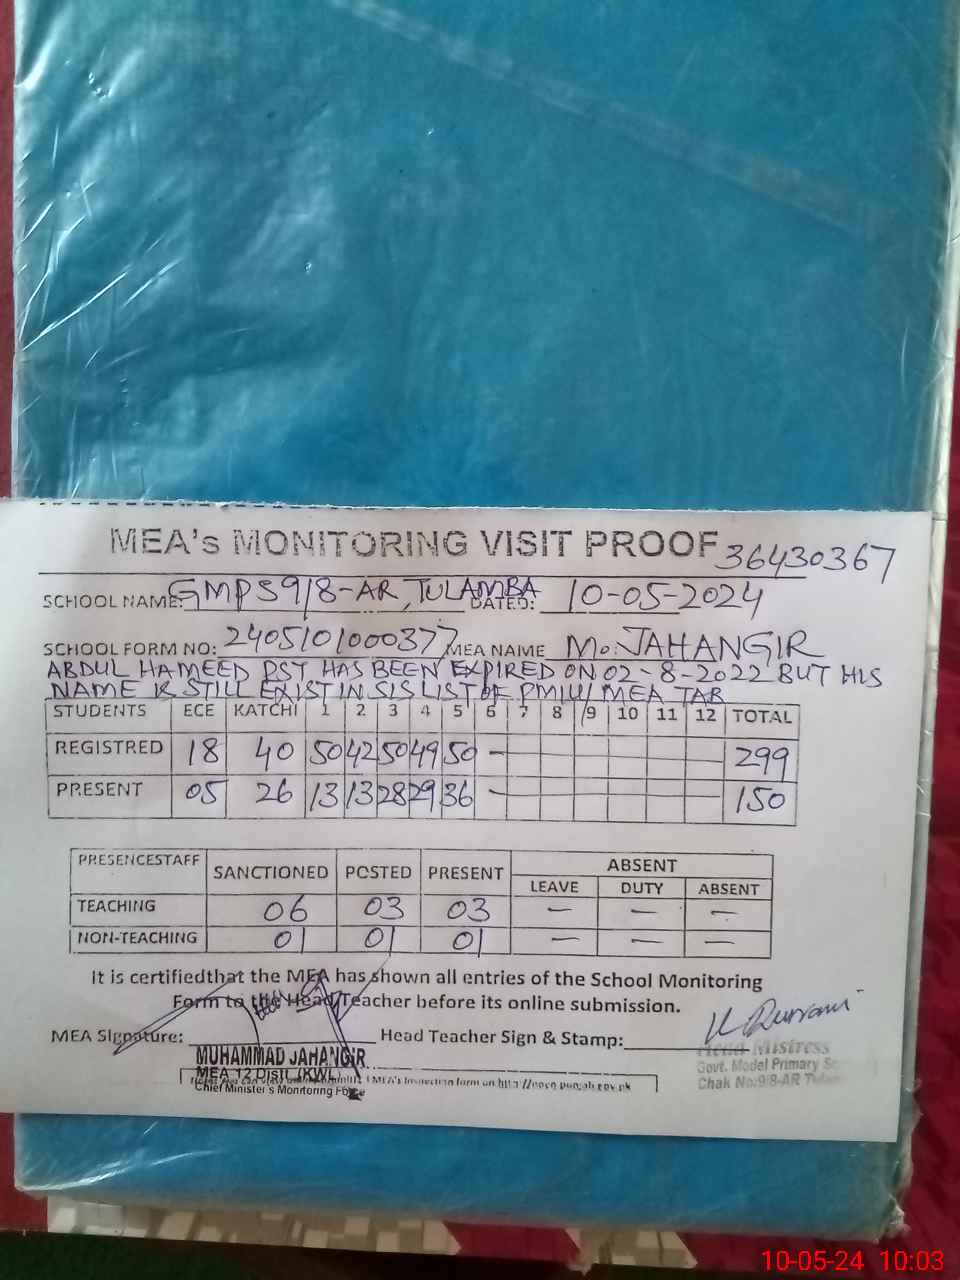 MEA's MONITORING VISIT PROOF 36430367
SCHOOL NAME: GMPS 9/8-AR, TULAMBA DATED: 10-05-2024
SCHOOL FORM NO: 2405101000377 MEA NAME M. JAHANGIR
ABDUL HAMEED PST HAS BEEN EXPIRED ON 02-8-2022 BUT HIS
NAME IS STILL EXIST IN SIS LIST OF PMIU/MEA TAB
STUDENTS ECE KATCHI 1 2 3 4 5 6 7 8 9 10 11 12 TOTAL
REGISTRED 18 40 50 42 50 49 50 - 299
PRESENT 05 26 13 13 28 29 36 - 150
PRESENCESTAFF SANCTIONED POSTED PRESENT ABSENT
LEAVE DUTY ABSENT
TEACHING 06 03 03 - - -
NON-TEACHING 01 01 01 - - -
It is certifiedthat the MEA has shown all entries of the School Monitoring
Form to the Head Teacher before its online submission.
MEA Signature: Head Teacher Sign & Stamp:
MUHAMMAD JAHANGIR
MEA 12 Distt. (KWL)
Chief Minister's Monitoring Force
MEA's Inspection form on
Head Mistress
Govt. Model Primary
Chak No.9/8-AR
10-05-24 10:03